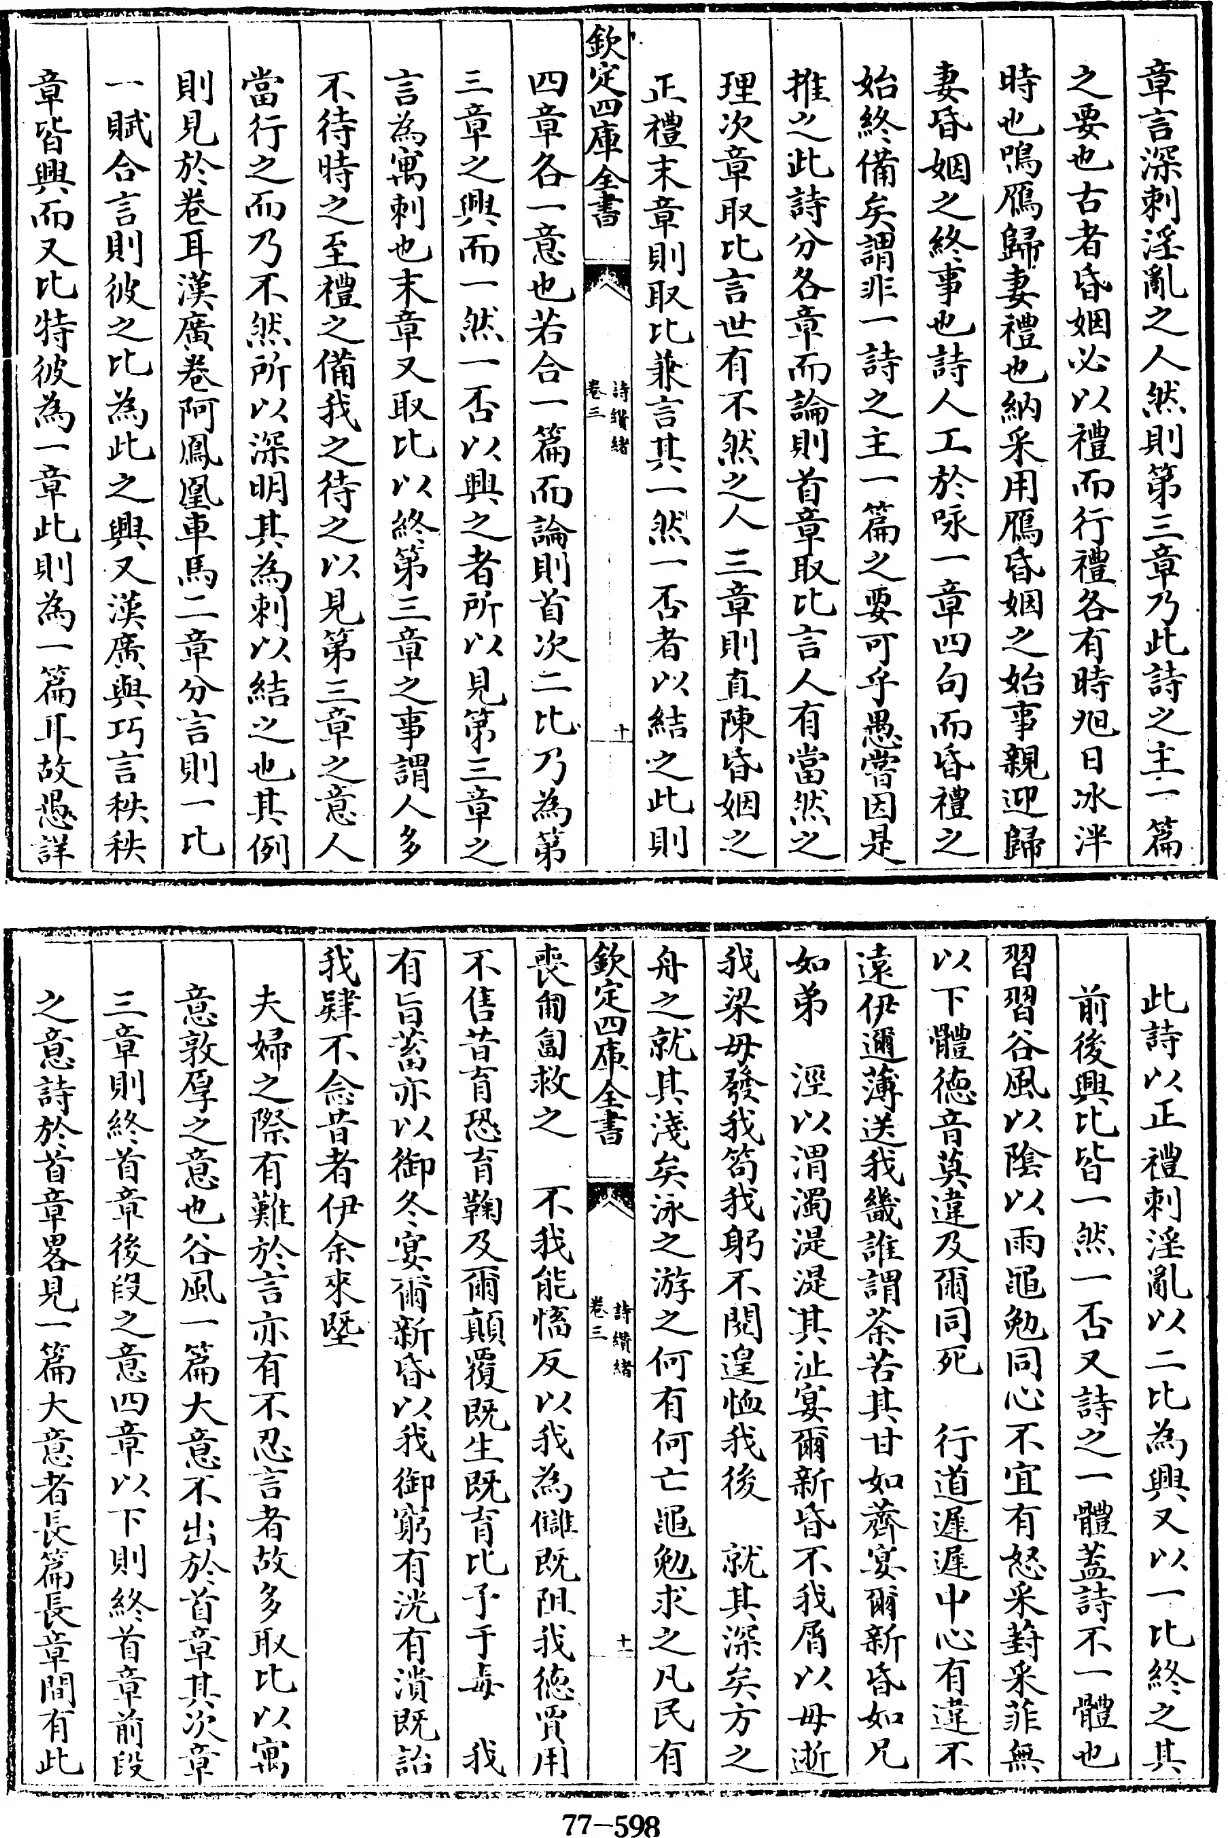 章言深刺淫亂之人然則第三章乃此詩之主一篇
之要也古者昏姻必以禮而行禮各有時旭日冰泮
時也鳴鴈歸妻禮也納采用鴈昏姻之始事親迎歸
妻昏姻之終事也詩人工於咏一章四句而昏禮之
始終備矣謂非一詩之主一篇之要可乎愚嘗因是
推之此詩分各章而論則首章取比言人有當然之
理次章取比言世有不然之人三章則直陳昏姻之
正禮末章則取比兼言其一然一否者以結之此則
欽定四庫全書
詩纉緒
卷三
十
四章各一意也若合一篇而論則首次二比乃為第
三章之興而一然一否以興之者所以見第三章之
言為寓刺也末章又取比以終第三章之事謂人多
不待時之至禮之備我之待之以見第三章之意人
當行之而乃不然所以深明其為刺以結之也其例
則見於卷耳漢廣卷阿鳳凰車馬二章分言則一比
一賦合言則彼之比為此之興又漢廣與巧言秩秩
章皆興而又比特彼為一章此則為一篇耳故慿詳
此詩以正禮刺淫亂以二比為興又以一比終之其
前後興比皆一然一否又詩之一體葢詩不一體也
習習谷風以隂以雨黽勉同心不宜有怒采葑采菲無
以下體德音莫違及爾同死　行道遲遲中心有違不
遠伊邇薄送我畿誰謂荼苦其甘如薺宴爾新昏如兄
如弟　涇以渭濁湜湜其沚宴爾新昏不我屑以毋逝
我梁毋發我笱我躬不閲遑恤我後　就其深矣方之
舟之就其淺矣泳之游之何有何亡黽勉求之凡民有
欽定四庫全書
詩纉緒
卷三
十一
喪匍匐救之　不我能慉反以我為讎既阻我德賈用
不售昔育恐育鞠及爾顛覆既生既育比予于毒　我
有旨蓄亦以御冬宴爾新昏以我御窮有洸有潰既詒
我肄不念昔者伊余來塈
夫婦之際有難於言亦有不忍言者故多取比以寓
意敦厚之意也谷風一篇大意不出於首章其次章
三章則終首章後段之意四章以下則終首章前段
之意詩於首章畧見一篇大意者長篇長章間有此
77—598